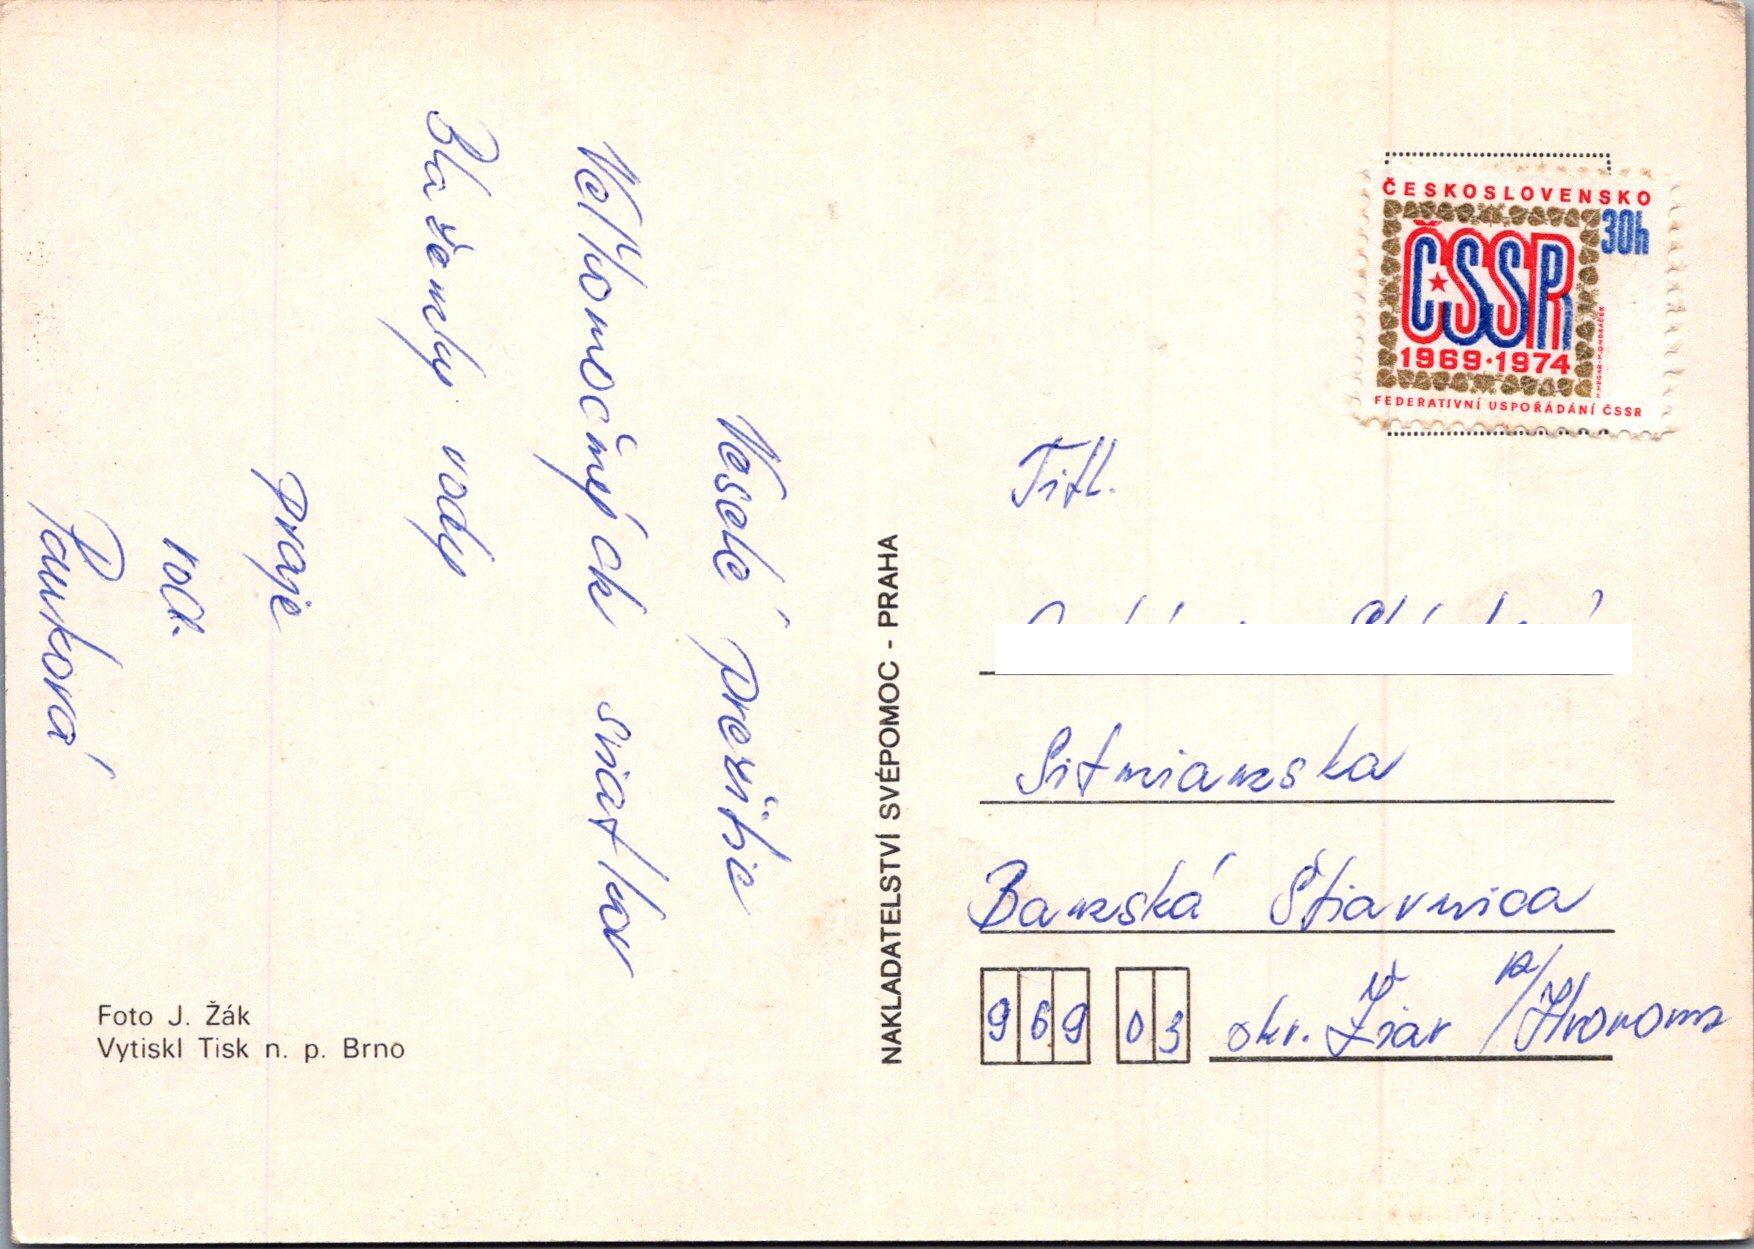 Veselé prežitie
Veľkonočných sviatkov
Blaženky vody
praje
rod.
Paukorá
Foto J. Žák
Vytiskl Tisk n. p. Brno
NAKLADATELSTVÍ SVÉPOMOC - PRAHA
ČESKOSLOVENSKO
30h
ČSSR
1969·1974
FEDERATIVNÍ USPOŘÁDÁNÍ ČSSR
Titl.
Sitnianska
Banská Štiavnica
969 03 okr. Žiar n/Hronom